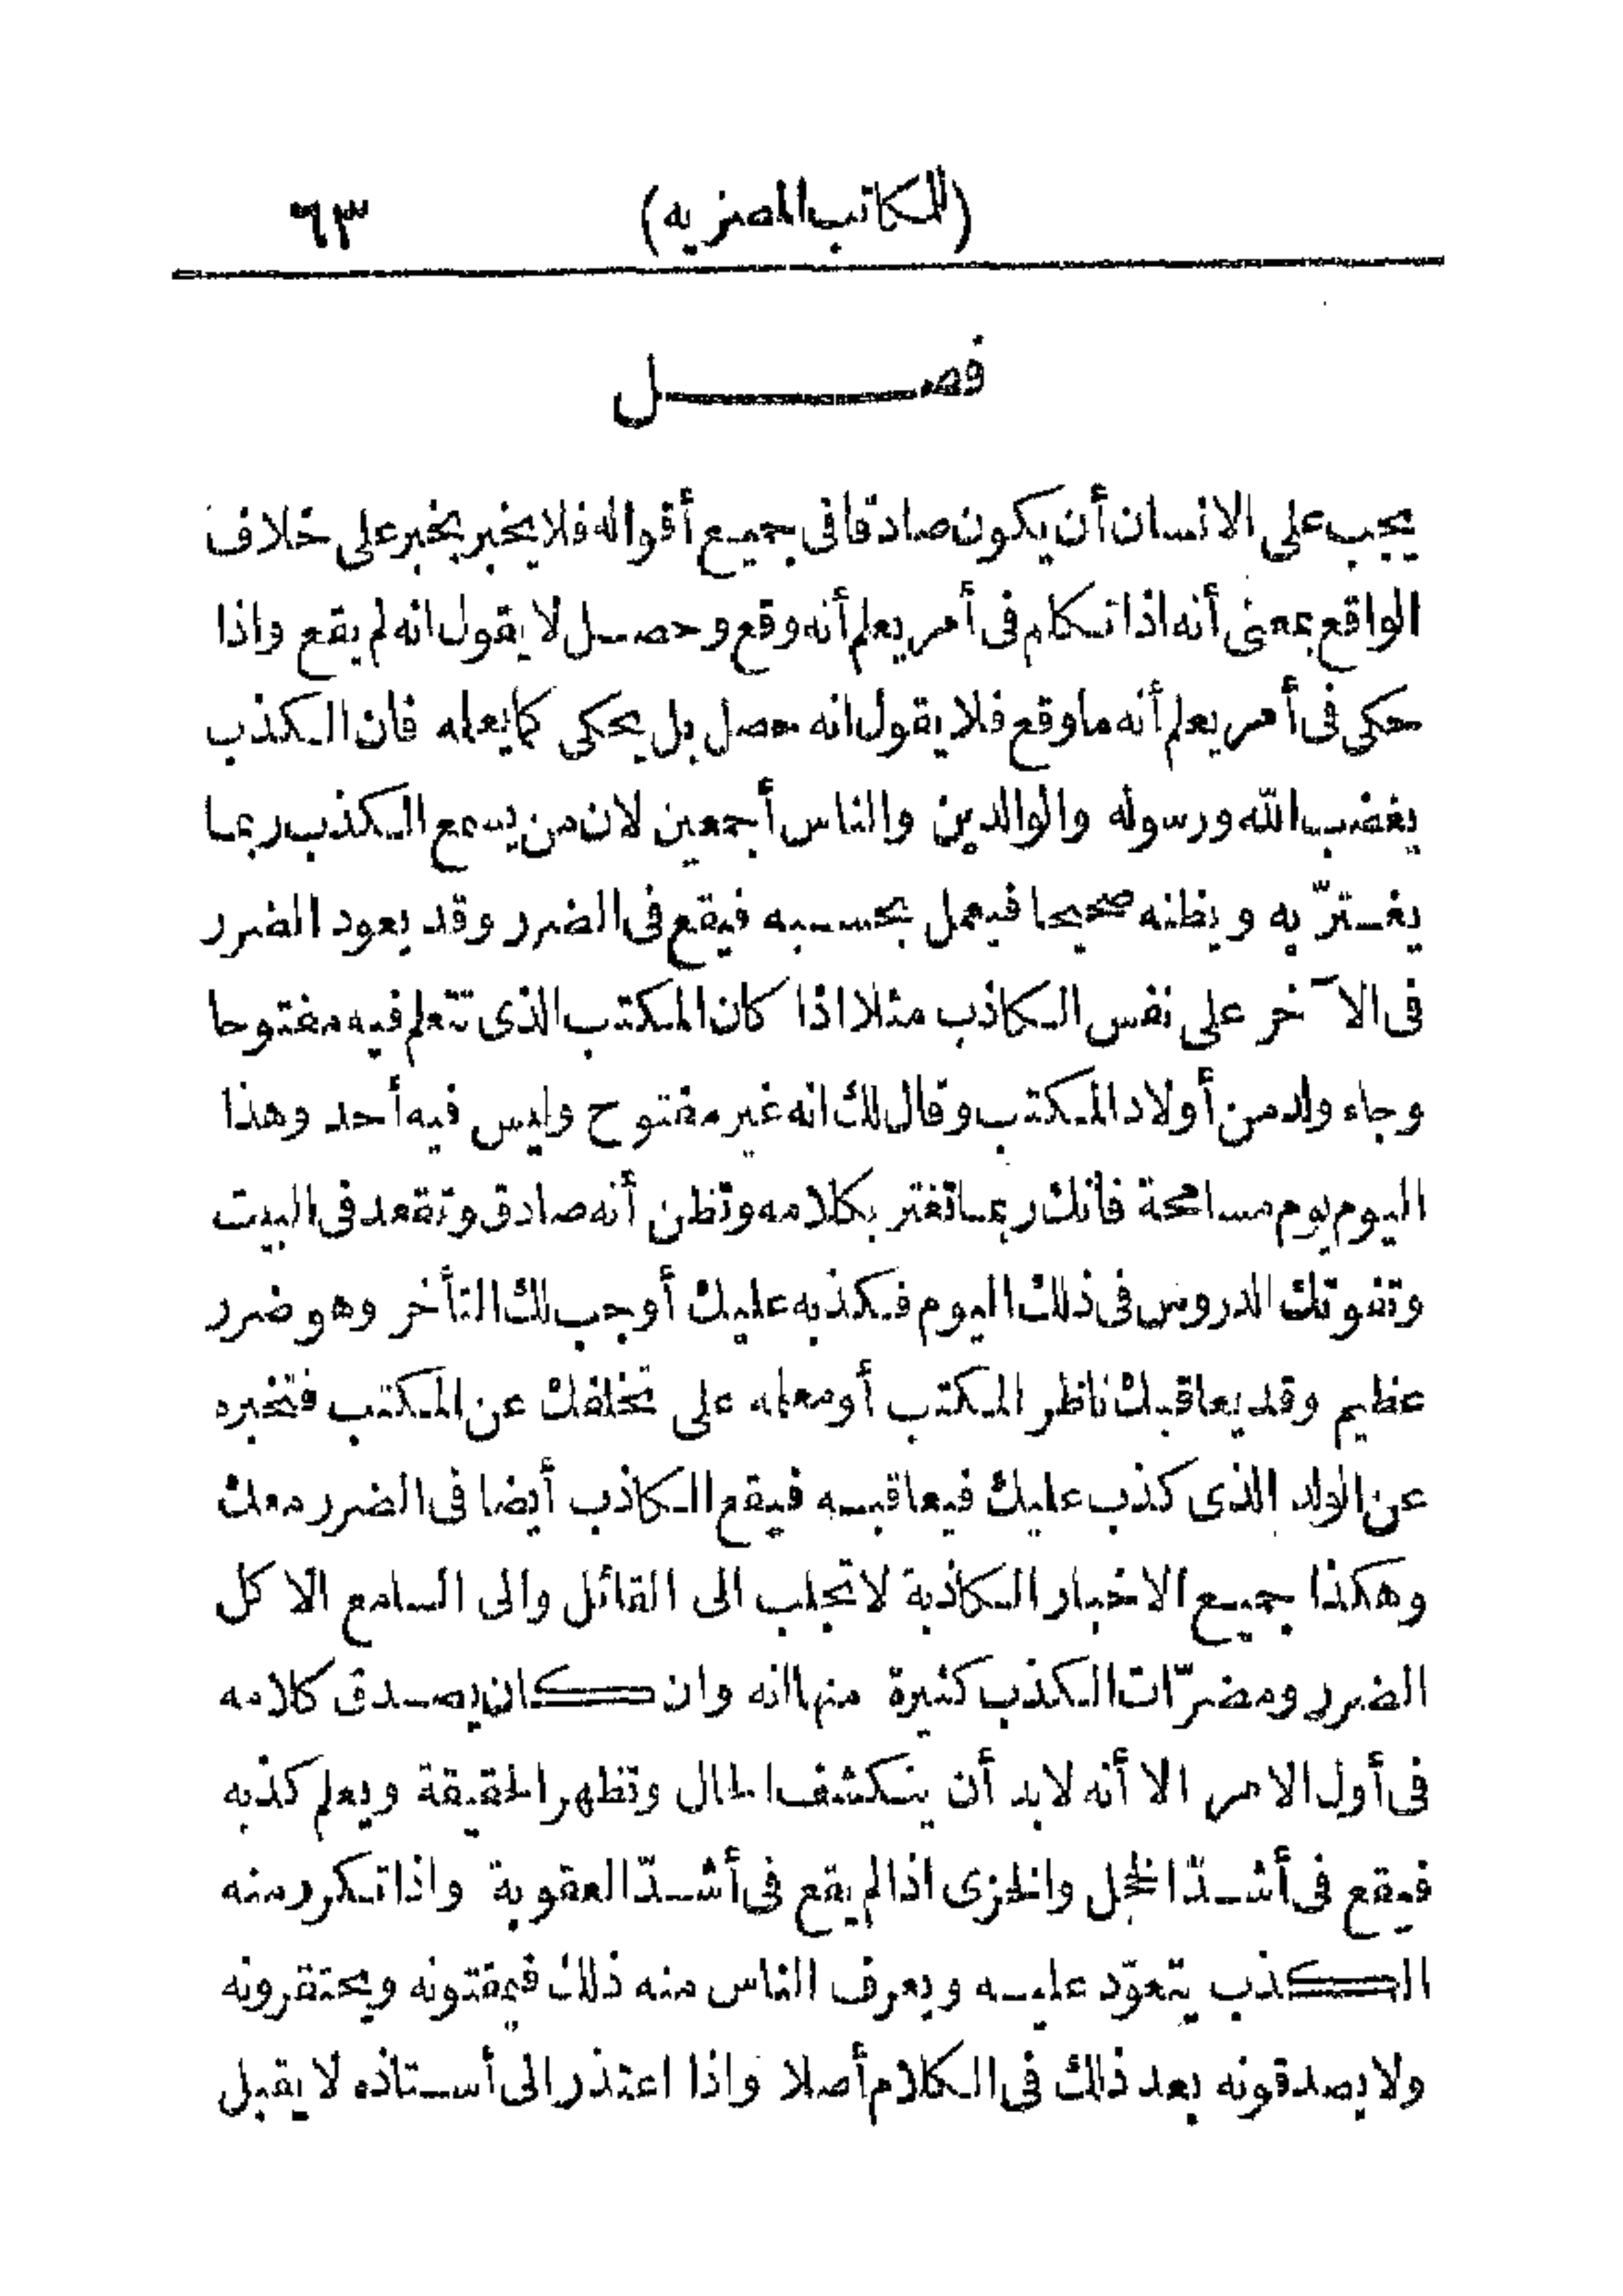 (للمكاتب المصريه) ٦٣
فصل
يجب على الانسان أن يكون صادقا فى جميع أقواله فلا يخبر بخبر على خلاف
الواقع بمعنى أنه اذا تكلم فى أمر يعلم أنه وقع وحصل لا يقول انه لم يقع واذا
حكى فى أمر يعلم أنه ما وقع فلا يقول انه حصل بل يحكى كما يعلمه فان الكذب
يغضب الله ورسوله والوالدين والناس أجمعين لان من يسمع الكذب ربما
يغسترّ به ويظنه صحيحا فيعمل بحسبه فيقع فى الضرر وقد يعود الضرر
فى الآخر على نفس الكاذب مثلا اذا كان المكتب الذى تتعلم فيه مفتوحا
وجاء ولد من أولاد المكتب وقال لك انه غير مفتوح وليس فيه أحد وهذا
اليوم يوم مسامحة فانك ربما تغتر بكلامه وتظن أنه صادق وتقعد فى البيت
وتفوتك الدروس فى ذلك اليوم فكذبه عليك أوجب لك التأخر وهو ضرر
عظيم وقد يعاقبك ناظر المكتب أو معلمه على تخلفك عن المكتب فتخبره
عن الولد الذى كذب عليك فيعاقبه فيقع الكاذب أيضا فى الضرر معك
وهكذا جميع الاخبار الكاذبة لا تجلب الى القائل والى السامع الا كل
الضرر ومضرّات الكذب كثيرة منها انه وان كان يصدق كلامه
فى أول الامر الا أنه لا بد أن ينكشف الحال وتظهر الحقيقة ويعلم كذبه
فيقع فى أشدّ الخجل والخزى اذا لم يقع فى أشدّ العقوبة واذا تكرر منه
الكذب يتعوّد عليه ويعرف الناس منه ذلك فيمقتونه ويحتقرونه
ولا يصدقونه بعد ذلك فى الكلام أصلا واذا اعتذر الى أستاذه لا يقبل